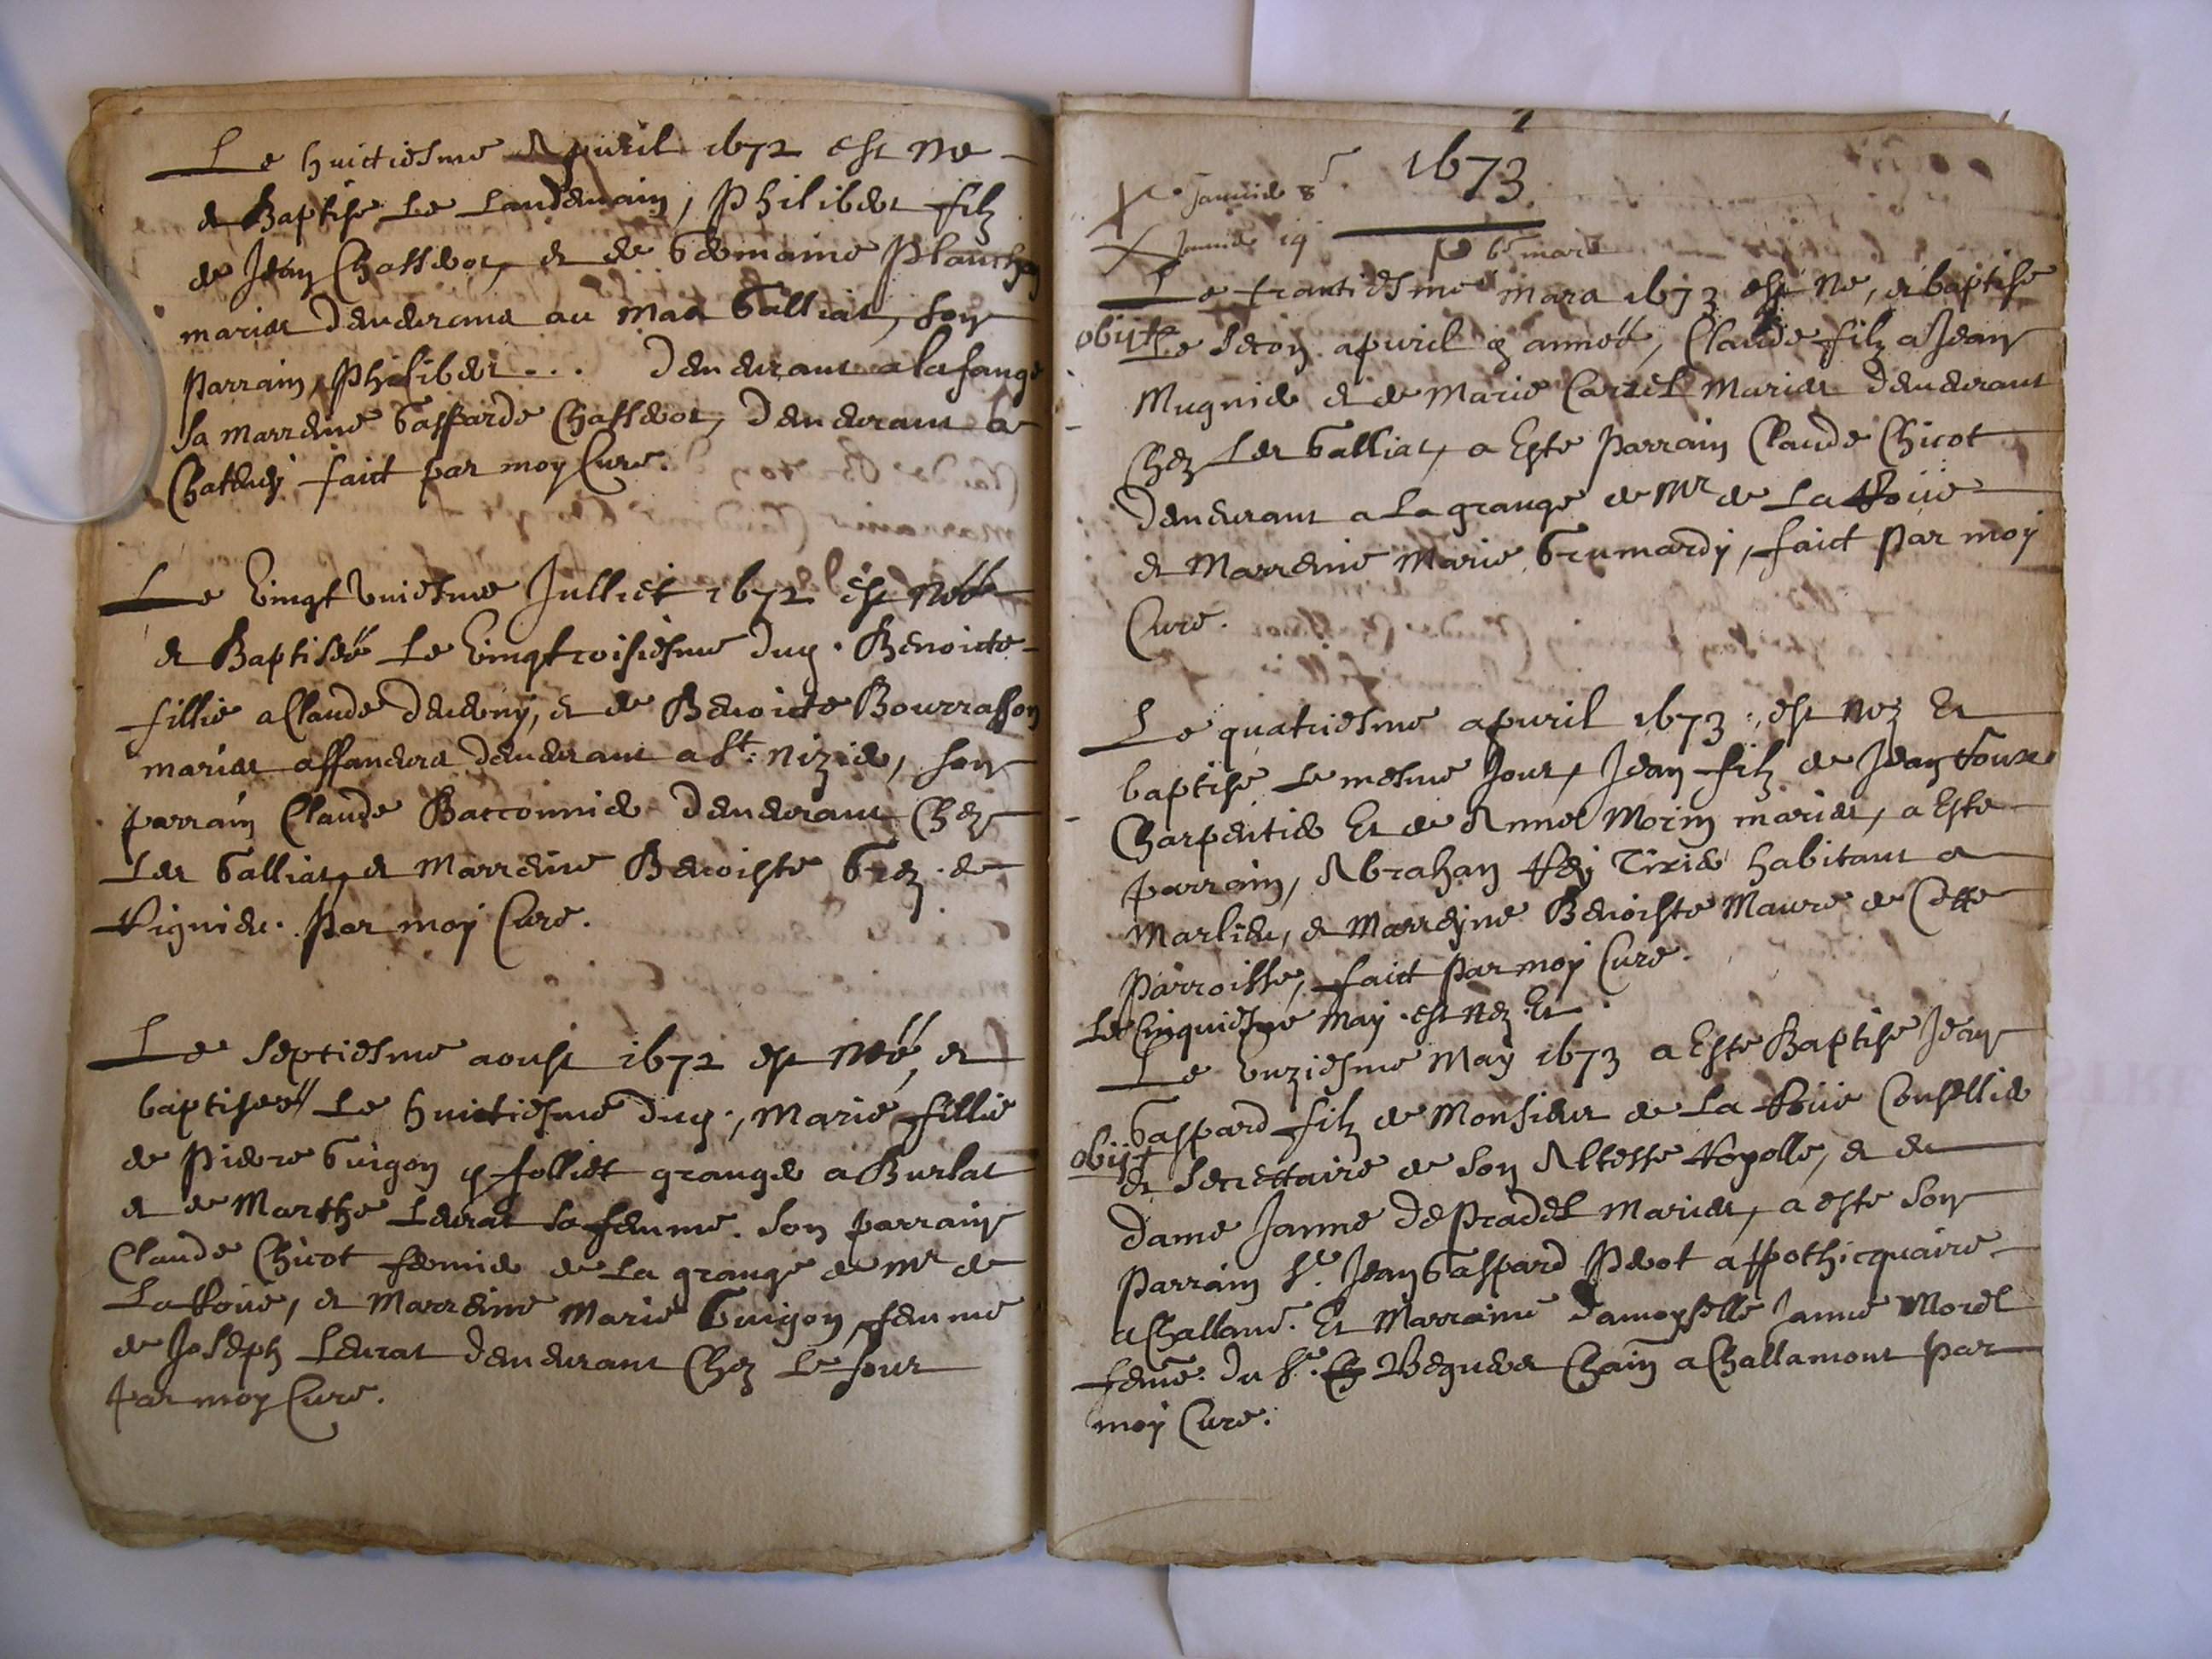 Le huictiesme Apvril 1672 est ne
et Baptise le landemain, Philibert filz
de Jean Chassedot, et de Germaine Planchon
maries demeurans au Mas Galliat, son
parrain, Philibert ... demeurant a la fange
sa marreine Gasparde Chassedot, demeurant a
faict par moy Cure.
Le Vingt vniesme Julliet 1672 est née
et Baptisée le Vingt troisiesme duy. Benoicte
fillie a Claude et de Benoicte Bourrasson
maries affaneurs demeurant a St. Nizier, son
parrain Claude Bacconnier demeurant Chez
les Galliat, et Marreine Benoiste Grez de
Rignieu. Par moy Cure.
Le septiesme aoust 1672 est née, et
baptisée le huictiesme duy; Marie fillie
de Pierre Guigon granger a Burlat
et de Marthe Leurat sa femme. son parrain
Claude Chicot fermier de la grange de Mr de
La Roüe, et Marreine Marie Guigon, femme
de Joseph Leurat demeurant Chez le four
Par moy Cure.
1673
Janvier 8
Janvier 19
6 mars
Le trantiesme mars 1673 est ne, et baptise
obijt
le secon apvril annéé, Claude filz a Jean
Mugnier et de Marie Carrel Maries demeurant
Chez les Galliat, a Este Parrain Claude Chicot
demeurant a la grange de Mr de La Roüe
et Marreine Marie Grumardy, faict Par moy
Cure.
Le quatriesme apvril 1673. est nez Et
baptise le mesme Jour, Jean filz de Jean Roux
Charpentier Et de Anne Morin maries, a Este
parrain, Abrahan Rey Tixier habitant a
Marlieu, et Marreyne Benoiste Maure de Cette
Parroisse, faict Par moy Cure.
Le Cinquiesme May est nez Et
Le vnziesme May 1673 a Este Baptise Jean
Gaspard filz de Monsieur de La Roüe Consellier
obijt
et Secrettaire de son Altesse Royalle, et de
dame Janne de Pradel Maries, a este son
Parrain Sr. Jean Gaspard appothicquaire
a Challamont. Et Marraine damoyselle Janne Morel
feme. du Sr. a Challamont par
moy Cure.